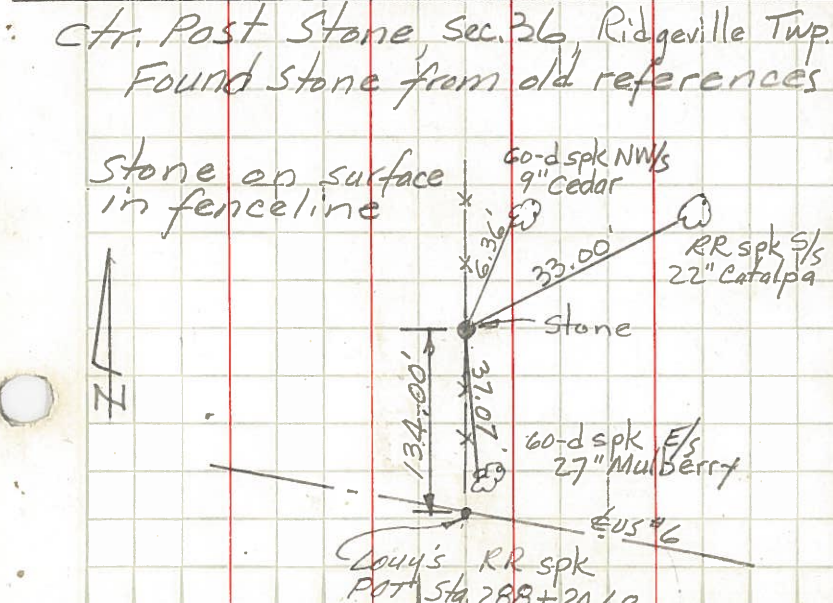 Ctr. Post Stone, Sec. 36, Ridgeville Twp.
Found Stone from old references
Stone on surface
in fenceline
60-d spk NW/s
9" Cedar
6.36'
33.00'
RR spk S/s
22" Catalpa
Stone
N
134.00'
37.07'
60-d spk E/s
27" Mulberry
℄ US #6
RR spk
POT Sta. 288+